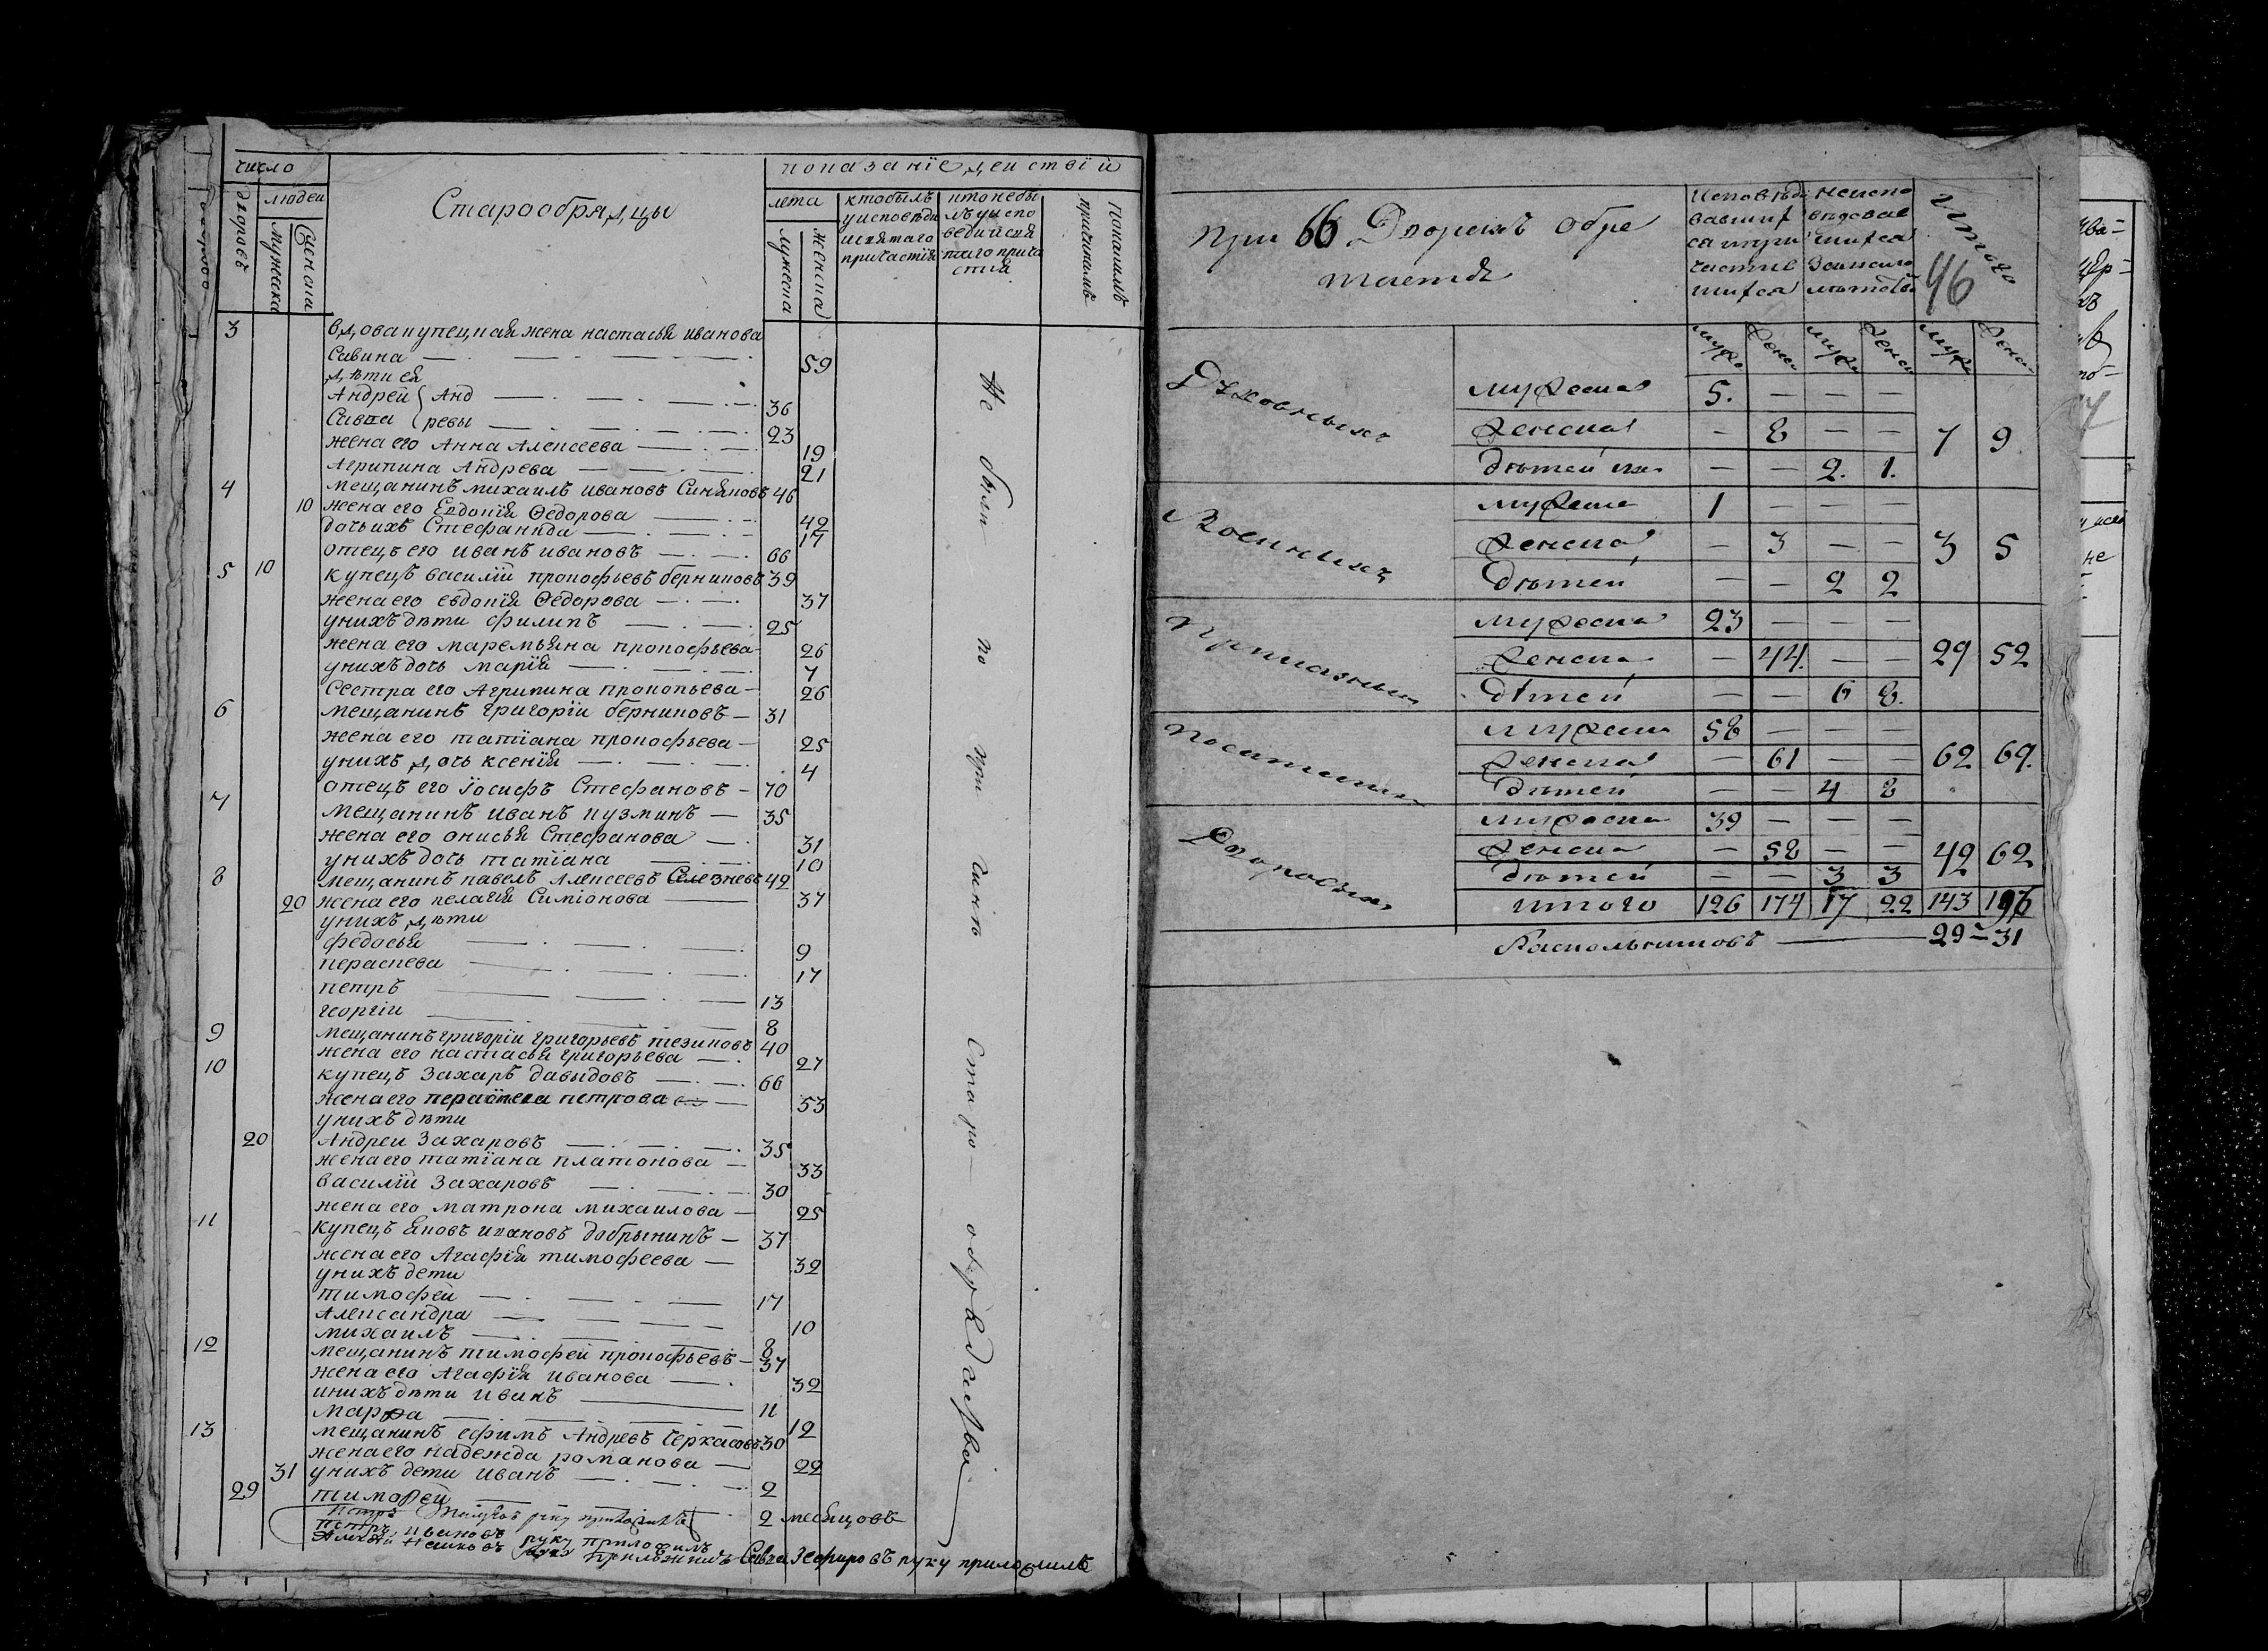 число
показанїе дѣйствїй
дворовъ
людей
мужеска
женска
Старообрядцы
лета
мужеска
женска
кто былъ
у исповѣди
и святаго
причастїя
кто не бы
лъ у испо
веди и свя
таго прича
стїя
покакимъ
причинамъ
3 вдова купецкая жена настасья иванова
Савина 59
дѣти ея
Андрей Анд 36
Савва ревы 23
жена его Анна Алексеева 19
Агрипина Андрева 21
4 мещанинъ михаилъ ивановъ Синяковъ 46
10 жена его Евдокїя Ѳедорова 42
дочь ихъ Стефанида 17
отецъ его иванъ ивановъ 66
5 10 купецъ василїй прокофьевъ берниковъ 39
жена его евдокїя Ѳедорова 37
у нихъ дѣти филипъ 25
жена его маремьяна прокофьева 26
у нихъ дочь марїя 7
Сестра его Агрипина прокопьева 26
6 мещанинъ григорїи берниковъ 31
жена его татїана прокофьева 25
у нихъ дочь ксенїя 4
отецъ его Їосифъ Стефановъ 70
7 мещанинъ иванъ кузминъ 35
жена его онисья Стефанова 31
у нихъ дочь татїана 10
8 мещанинъ павелъ Алексеевъ Селезневъ 42
20 жена его пелагїя Симїонова 37
у нихъ дѣти
федосья 9
пераскева 17
петръ 13
георгїи 8
9 мещанинъ григорїи григорьевъ тезиковъ 40
жена его настасья григорьева 27
10 купецъ Захаръ давыдовъ 66
жена его пераскева петрова 53
у нихъ дѣти
20 Андреи Захаровъ 35
жена его татїана платонова 33
василїй Захаровъ 30
жена его матрона михаилова 25
11 купецъ яковъ ивановъ добрынинъ 37
жена его Агафїя тимофеева 32
у нихъ дети
тимофей 17
Александра 10
михаилъ 8
12 мещанинъ тимофей прокофьевъ 37
жена его Агафїя иванова 32
и нихъ дѣти иванъ 11
марѳа 12
13 мещанинъ ефимъ Андревъ Черкасовъ 30
жена его надежда романова 22
31 у нихъ дети иванъ 2
29 тимоѳей 2 месяцовъ
Не были по при
Старо
обрядства
Петръ руку приложилъ
петръ ивановъ руку приложилъ
руку приложилъ Савва Зефировъ руку приложилъ
При 66 Дворахъ обре
таетсѧ
Исповѣдо
вавших
са и при
частив
шихса
неиспо
ведовав
шихса
За мало
лѣтство
Итого
46
муж женс муж женс муж женс
Духовныхъ
мужеска 5. — — —
женска — 8 — — 7 9
дѣтей их — — 2. 1.
Военныхъ
мужеска 1 — — —
женска — 3 — — 3 5
дѣтей — — 2 2
Приказных
мужеска 23 — — —
женска — 44. — — 29 52
дѣтей — — 6 8.
Посатских
мужеска 58 — — —
женска — 61 — — 62 69.
дѣтей — — 4 8
Дворовых
мужеска 39 — — —
женска — 58 — — 42 62
дѣтей — — 3 3
итого 126 174 17 22 143 196
Раскольниковъ 29 — 31